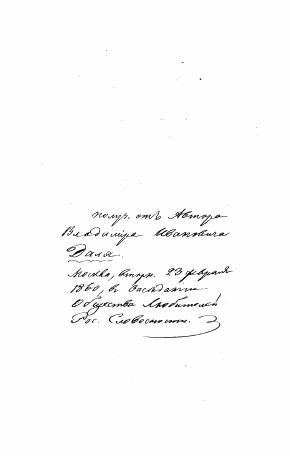 получ. отъ Автора
Владиміра Ивановича
Даля.
Москва, вторн. 23 февраля
1860, в Засѣданіи
Общества Любителей
Рос. Словесности.